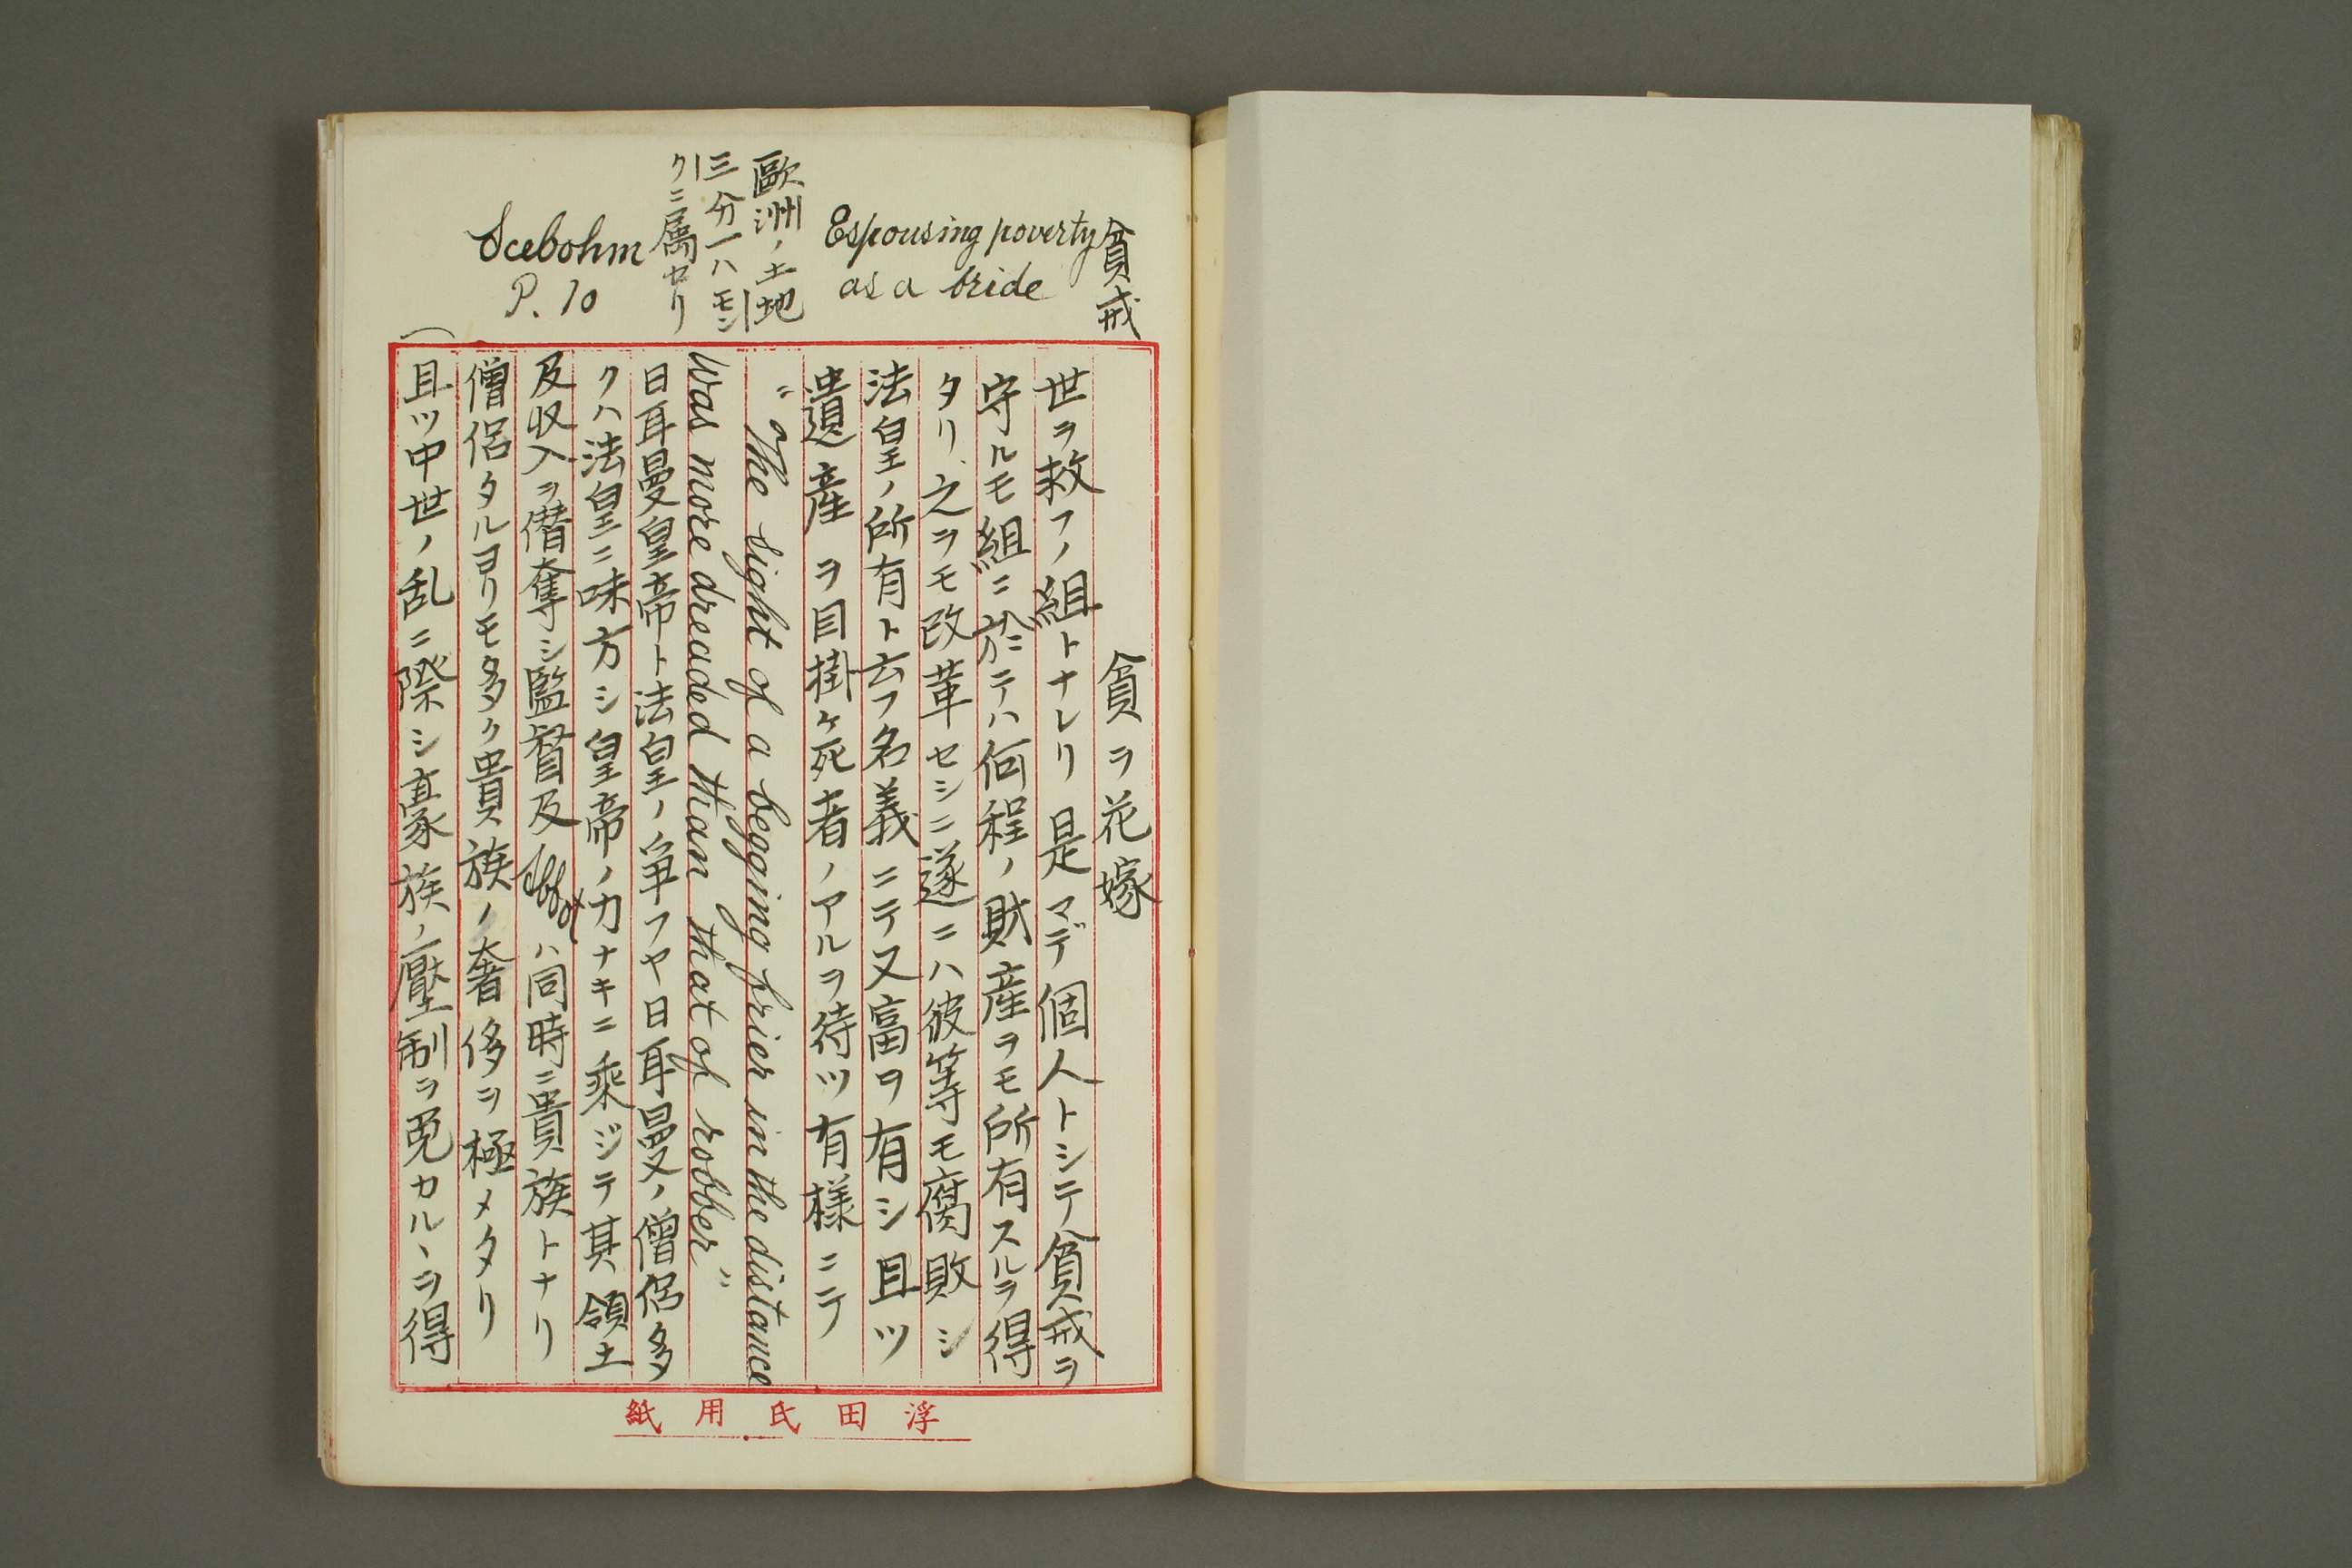 貧戒
Espousing poverty
as a bride
歐洲ノ土地
三分一ハモン
クニ属セリ
Seebohm
P. 10
貧ヲ花嫁
世ヲ救フノ組トナレリ 是マデ個人トシテ貧戒ヲ
守ルモ組ニ於テハ何程ノ財産ヲモ所有スルヲ得
タリ、之ヲモ改革セシニ遂ニハ彼等モ腐敗シ
法皇ノ所有ト云フ名義ニテ又富ヲ有シ且ツ
遺産ヲ目掛ケ死者ノアルヲ待ツ有様ニテ
"The sight of a begging frier in the distance
was more dreaded than that of robber"
日耳曼皇帝ト法皇ノ争フヤ日耳曼ノ僧侶多
クハ法皇ニ味方シ皇帝ノ力ナキニ乘ジテ其領土
及収入ヲ僭奪シ監督及 ハ同時ニ貴族トナリ
僧侶タルヨリモ多ク貴族ノ奢侈ヲ極メタリ
且ツ中世ノ乱ニ際シ豪族ノ壓制ヲ免カルヽヲ得
浮田氏用紙